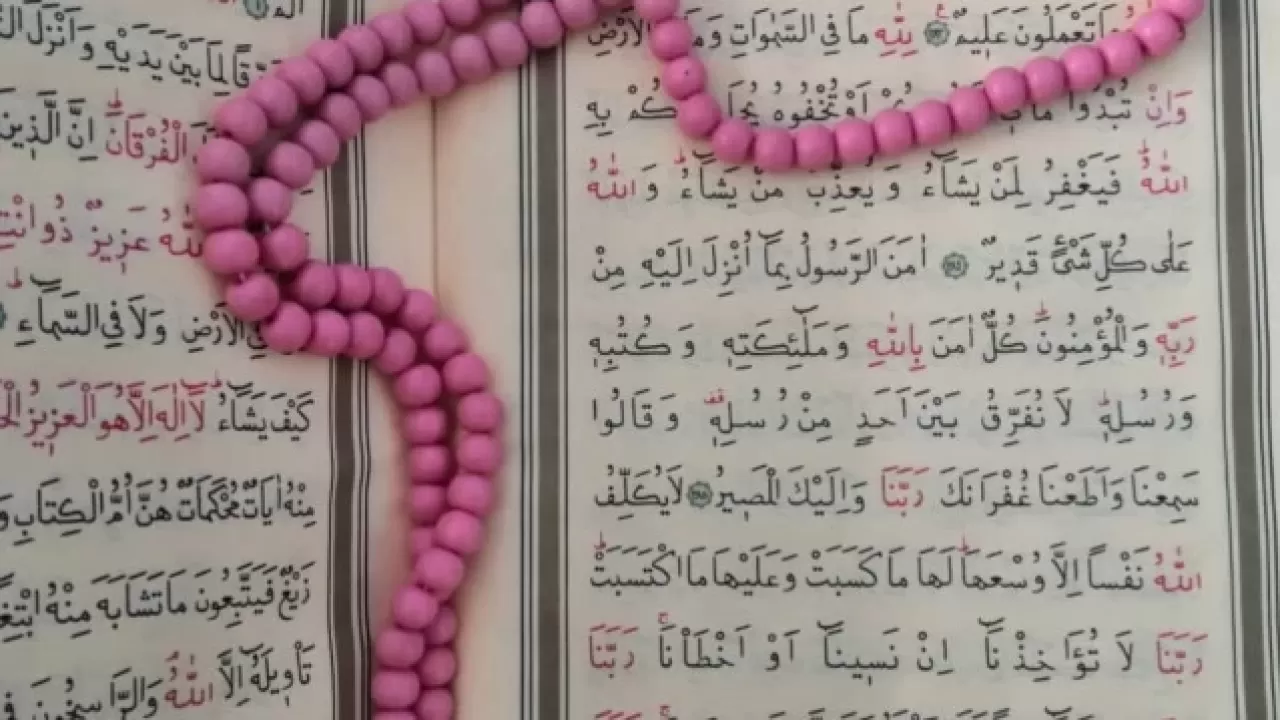 تَعْمَلُونَ عَلٖيمٌ ﴿٢٨٣﴾ لِلّٰهِ مَا فِي السَّمٰوَاتِ الْاَرْضِ
وَاِنْ تُبْدُوا اَوْ تُخْفُوهُ بِهِ
اللّٰهُ فَيَغْفِرُ لِمَنْ يَشَٓاءُ وَ يُعَذِّبُ مَنْ يَشَٓاءُ وَ اللّٰهُ
عَلٰى كُلِّ شَيْءٍ قَدٖيرٌ ﴿٢٨٤﴾ اٰمَنَ الرَّسُولُ بِمَٓا اُنْزِلَ اِلَيْهِ مِنْ
رَبِّهٖ وَالْمُؤْمِنُونَ كُلٌّ اٰمَنَ بِاللّٰهِ وَمَلٰٓئِكَتِهٖ وَ كُتُبِهٖ
وَرُسُلِهٖ لَا نُفَرِّقُ بَيْنَ اَحَدٍ مِنْ رُسُلِهٖ وَ قَالُوا
سَمِعْنَا وَاَطَعْنَا غُفْرَانَكَ رَبَّنَا وَاِلَيْكَ الْمَصٖيرُ ﴿٢٨٥﴾ لَا يُكَلِّفُ
اللّٰهُ نَفْساً اِلَّا وُسْعَهَا لَهَا مَا كَسَبَتْ وَعَلَيْهَا مَا اكْتَسَبَتْ
رَبَّنَا لَا تُؤَاخِذْنَٓا اِنْ نَسٖينَٓا اَوْ اَخْطَأْنَا رَبَّنَا
الٓمٓ ﴿١﴾
لِمَا بَيْنَ يَدَيْهِ وَاَنْزَلَ
الْفُرْقَانَ اِنَّ الَّذٖينَ
اللّٰهُ عَزٖيزٌ ذُو
الْاَرْضِ وَلَا فِي السَّمَٓاءِ
كَيْفَ يَشَٓاءُ لَٓا اِلٰهَ اِلَّا هُوَ الْعَزٖيزُ
مِنْهُ اٰيَاتٌ مُحْكَمَاتٌ هُنَّ اُمُّ الْكِتَابِ
زَيْغٌ فَيَتَّبِعُونَ مَا تَشَابَهَ مِنْهُ
تَأْوٖيلَهُٓ اِلَّا اللّٰهُ وَالرَّاسِخُونَ